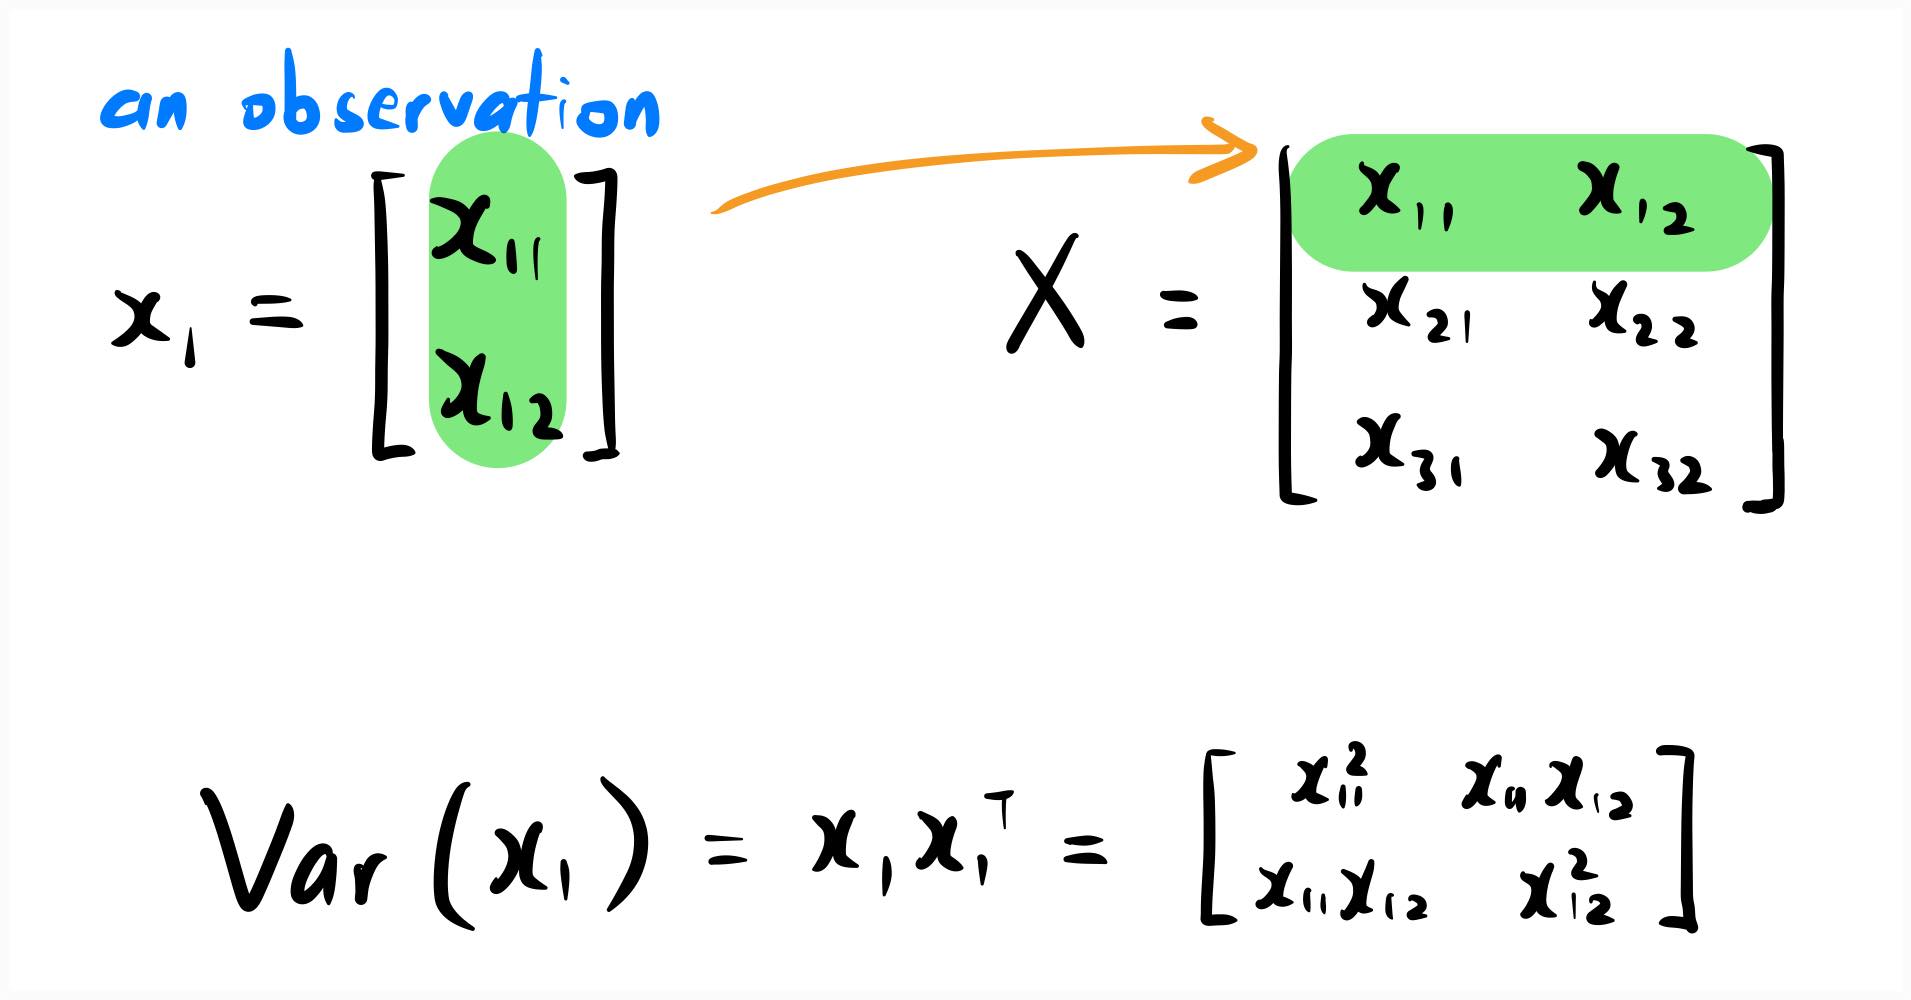 an observation
x₁ = [x₁₁
x₁₂]
X = [x₁₁ x₁₂
x₂₁ x₂₂
x₃₁ x₃₂]
Var(x₁) = x₁x₁ᵀ = [x₁₁² x₁₁x₁₂
x₁₁x₁₂ x₁₂²]